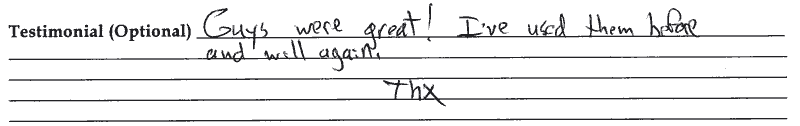 Testimonial (Optional) Guys were great! I've used them before
and will again.
Thx